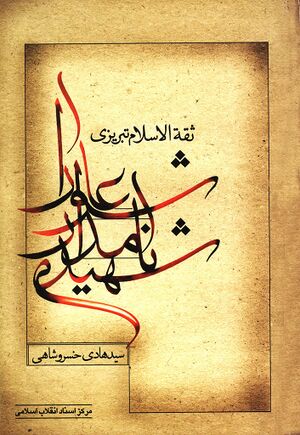 ثقة الاسلام تبریزی
شهید نامدار عاشورا
سید هادی خسروشاهی
مرکز اسناد انقلاب اسلامی